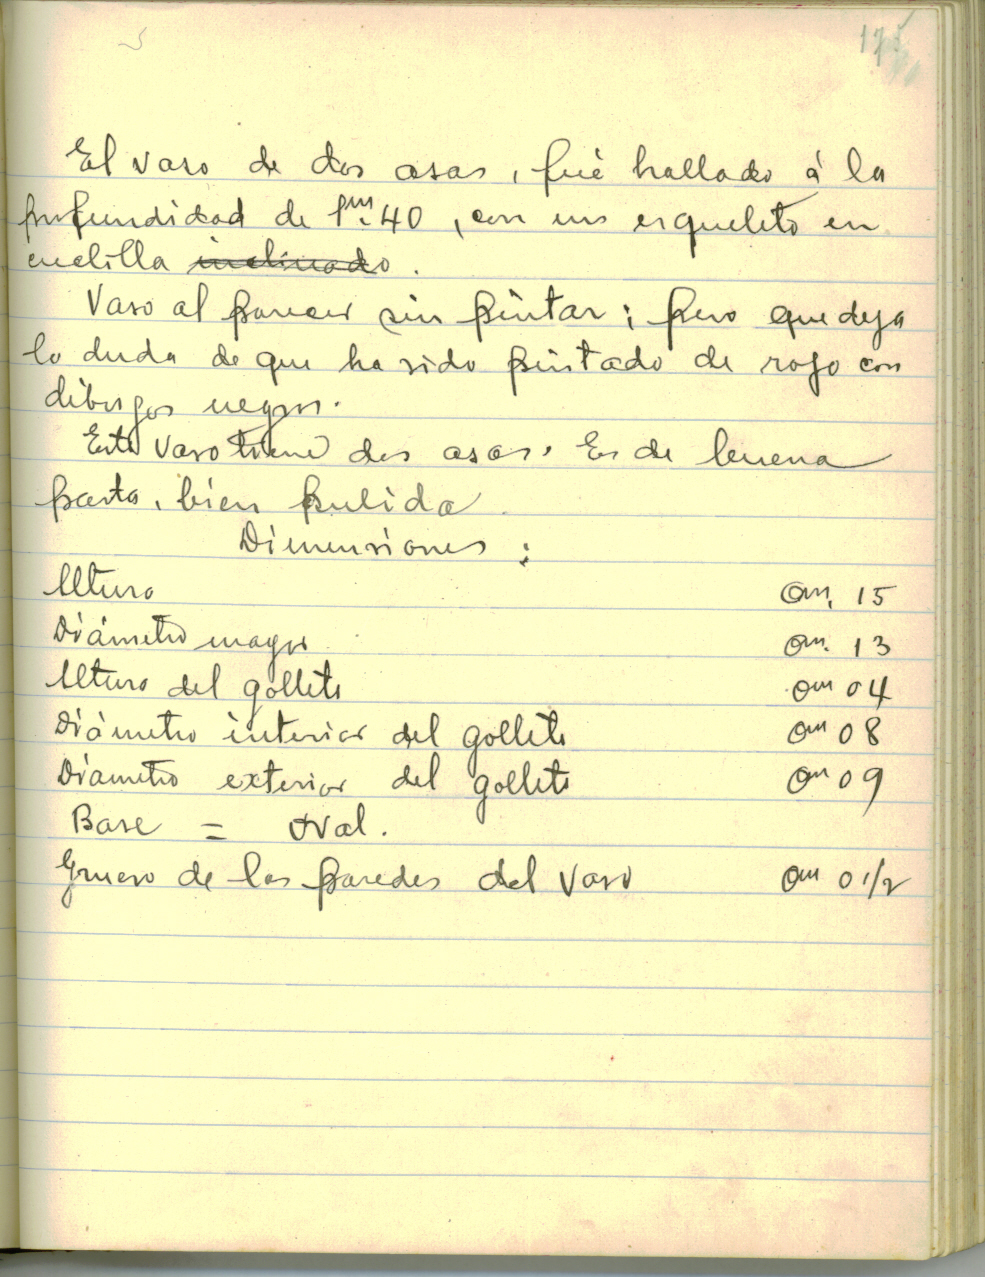 El vaso de dos asas, fué hallado á la
profundidad de 1m.40, con un esqueleto en
cuclilla inclinado.
Vaso al parecer sin pintar; pero que deja
la duda de que ha sido pintado de rojo con
dibujos negros.
Este vaso tiene dos asas. Es de buena
pasta, bien pulida.
Dimensiones:
Altura 0m. 15
Diámetro mayor 0m. 13
Altura del gollete 0m 04
Diámetro interior del gollete 0m 08
Diametro exterior del gollete 0m 09
Base = oval.
Grueso de las paredes del vaso 0m 0 1/2